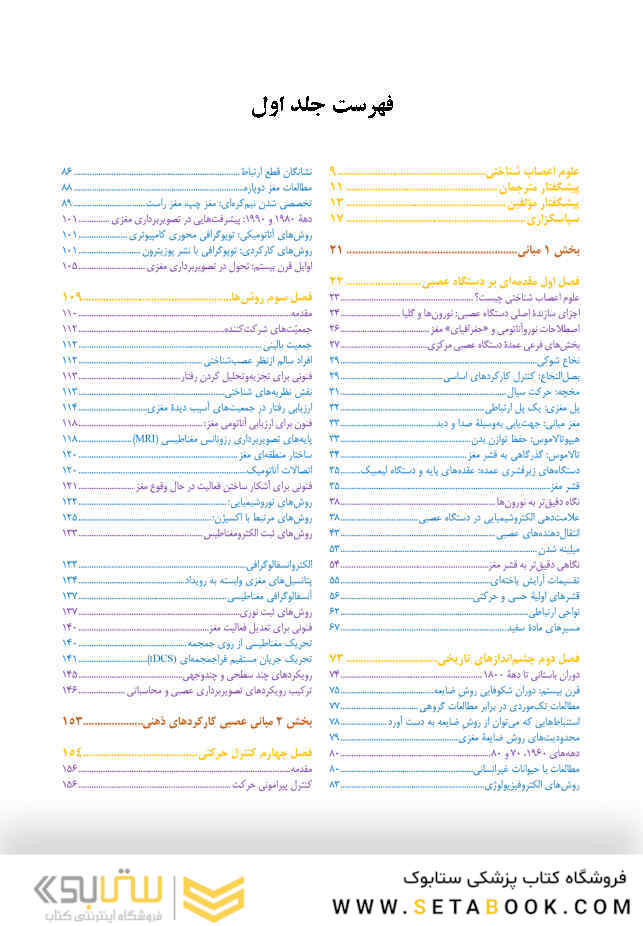 فهرست جلد اول
علوم اعصاب شناختی ... ۹
پیشگفتار مترجمان ... ۱۱
پیشگفتار مؤلفین ... ۱۳
سپاسگزاری ... ۱۷
بخش ۱ مبانی ... ۲۱
فصل اول مقدمه‌ای بر دستگاه عصبی ... ۲۲
علوم اعصاب شناختی چیست؟ ... ۲۳
اجزای سازندهٔ اصلی دستگاه عصبی: نورون‌ها و گلیا ... ۲۴
اصطلاحات نوروآناتومی و «جغرافیای» مغز ... ۲۶
بخش‌های فرعی عمدهٔ دستگاه عصبی مرکزی ... ۲۷
نخاع شوکی ... ۲۹
بصل‌النخاع: کنترل کارکردهای اساسی ... ۲۹
مخچه: حرکت سیال ... ۳۱
پل مغزی: یک پل ارتباطی ... ۳۲
مغز میانی: جهت‌یابی به‌وسیلهٔ صدا و دید ... ۳۳
هیپوتالاموس: حفظ توازن بدن ... ۳۳
تالاموس: گذرگاهی به قشر مغز ... ۳۴
دستگاه‌های زیرقشری عمده: عقده‌های پایه و دستگاه لیمبیک ... ۳۵
قشر مغز ... ۳۵
نگاه دقیق‌تر به نورون‌ها ... ۳۸
علامت‌دهی الکتروشیمیایی در دستگاه عصبی ... ۳۸
انتقال‌دهنده‌های عصبی ... ۴۳
میلینه شدن ... ۵۳
نگاهی دقیق‌تر به قشر مغز ... ۵۴
تقسیمات آرایش یاخته‌ای ... ۵۵
قشرهای اولیهٔ حسی و حرکتی ... ۵۶
نواحی ارتباطی ... ۶۲
مسیرهای مادهٔ سفید ... ۶۷
فصل دوم چشم‌اندازهای تاریخی ... ۷۳
دوران باستانی تا دههٔ ۱۸۰۰ ... ۷۴
قرن بیستم: دوران شکوفایی روش ضایعه ... ۷۵
مطالعات تک‌موردی در برابر مطالعات گروهی ... ۷۷
استنباط‌هایی که می‌توان از روشِ ضایعه به دست آورد ... ۷۸
محدودیت‌های روش ضایعهٔ مغزی ... ۷۹
دهه‌های ۱۹۶۰، ۷۰ و ۸۰ ... ۸۰
مطالعات با حیوانات غیرانسانی ... ۸۰
روش‌های الکتروفیزیولوژی ... ۸۳
نشانگان قطع ارتباط ... ۸۶
مطالعات مغز دوپاره ... ۸۸
تخصصی شدن نیم‌کره‌ای: مغز چپ، مغز راست ... ۸۹
دههٔ ۱۹۸۰ و ۱۹۹۰: پیشرفت‌هایی در تصویربرداری مغزی ... ۱۰۱
روش‌های آناتومیکی: توپوگرافی محوری کامپیوتری ... ۱۰۱
روش‌های کارکردی: توپوگرافی با نشر پوزیترون ... ۱۰۱
اوایل قرن بیستم: تحول در تصویربرداری مغزی ... ۱۰۵
فصل سوم روش‌ها ... ۱۰۹
مقدمه ... ۱۱۰
جمعیّت‌های شرکت‌کننده ... ۱۱۲
جمعیت بالینی ... ۱۱۲
افراد سالم ازنظر عصب‌شناختی ... ۱۱۲
فنونی برای تجزیه‌وتحلیل کردن رفتار ... ۱۱۳
نقش نظریه‌های شناختی ... ۱۱۳
ارزیابی رفتار در جمعیت‌های آسیب دیدهٔ مغزی ... ۱۱۴
فنون برای ارزیابی آناتومی مغز: ... ۱۱۸
پایه‌های تصویربرداری رزونانس مغناطیسی (MRI) ... ۱۱۸
ساختار منطقه‌ای مغز ... ۱۲۰
اتصالات آناتومیک ... ۱۲۰
فنونی برای آشکار ساختن فعالیت در حال وقوع مغز ... ۱۲۱
روش‌های نوروشیمیایی: ... ۱۲۲
روش‌های مرتبط با اکسیژن: ... ۱۲۵
روش‌های ثبت الکترومغناطیس ... ۱۳۳
الکتروانسفالوگرافی ... ۱۳۳
پتانسیل‌های مغزی وابسته به رویداد ... ۱۳۴
آنسفالوگرافی مغناطیسی ... ۱۳۷
روش‌های ثبت نوری ... ۱۳۷
فنونی برای تعدیل فعالیت مغز ... ۱۴۰
تحریک مغناطیسی از روی جمجمه ... ۱۴۰
تحریک جریان مستقیم فراجمجمه‌ای (tDCS) ... ۱۴۱
رویکردهای چند سطحی و چندوجهی ... ۱۴۵
ترکیب رویکردهای تصویربرداری عصبی و محاسباتی ... ۱۴۶
بخش ۲ مبانی عصبی کارکردهای ذهنی ... ۱۵۳
فصل چهارم کنترل حرکتی ... ۱۵۴
مقدمه ... ۱۵۶
کنترل پیرامونی حرکت ... ۱۵۶
فروشگاه کتاب پزشکی ستابوک
WWW.SETABOOK.COM
ستابوک
فروشگاه اینترنتی کتاب